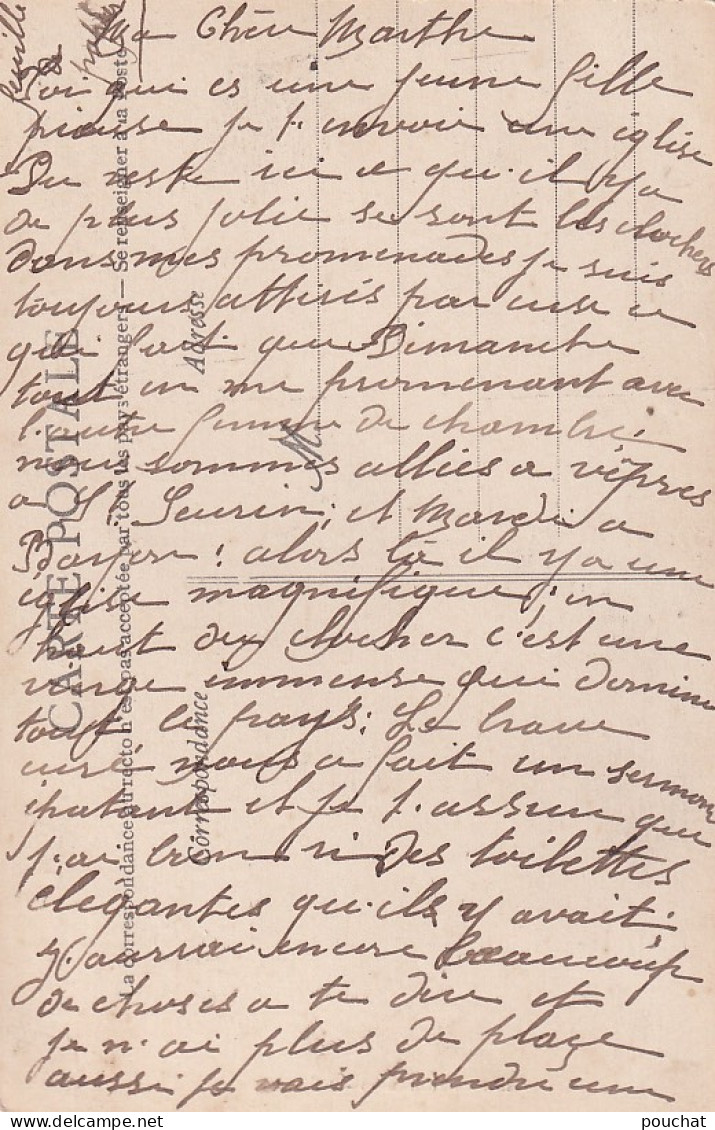 Ma Chère Marthe
Toi qui es une jeune fille
pieuse je t'envoie une église
Du reste ici ce qu'il y a
de plus jolie se sont les clochers
dans mes promenades je suis
toujours attisés par eux ce
qui fait que Dimanche
tout en me promenant avec
l'autre femme de chambre
nous sommes allies a vêpres
a St Seurin; et Mardi a
Bayon; alors là il y a une
église magnifique; en
haut du clocher c'est une
vierge immense qui domine
tout le pays; Le brave
curé nous a fait un sermon
épatant et je t'assure que
j'ai bien ri des toilettes
élégantes qu'ils y avait.
J'aurrai encore beaucoup
de choses a te dire et
je n'ai plus de place
aussi je vais prendre une
feuille
de
CARTE POSTALE
La correspondance au recto n'est pas acceptée par tous les pays étrangers — Se renseigner à la Poste
Correspondance
Adresse
M
pouchat